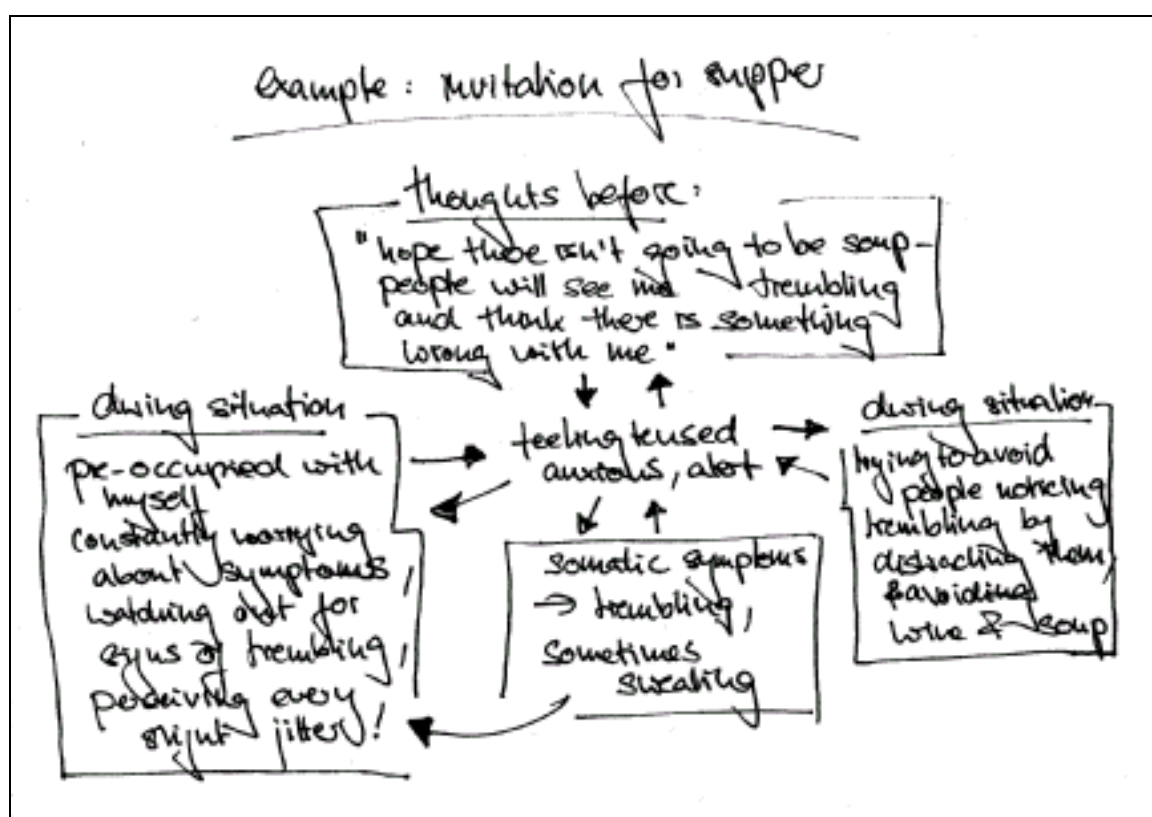 example: invitation for supper
thoughts before:
"hope there isn't going to be soup -
people will see me trembling
and think there is something
wrong with me"
during situation
pre-occupied with
myself
constantly worrying
about symptoms,
watching out for
signs of trembling,
perceiving every
slight jitter!
feeling tensed
anxious, alert
somatic symptoms
→ trembling,
sometimes
sweating
during situation
trying to avoid
people noticing
trembling by
distracting them,
& avoiding
wine & soup